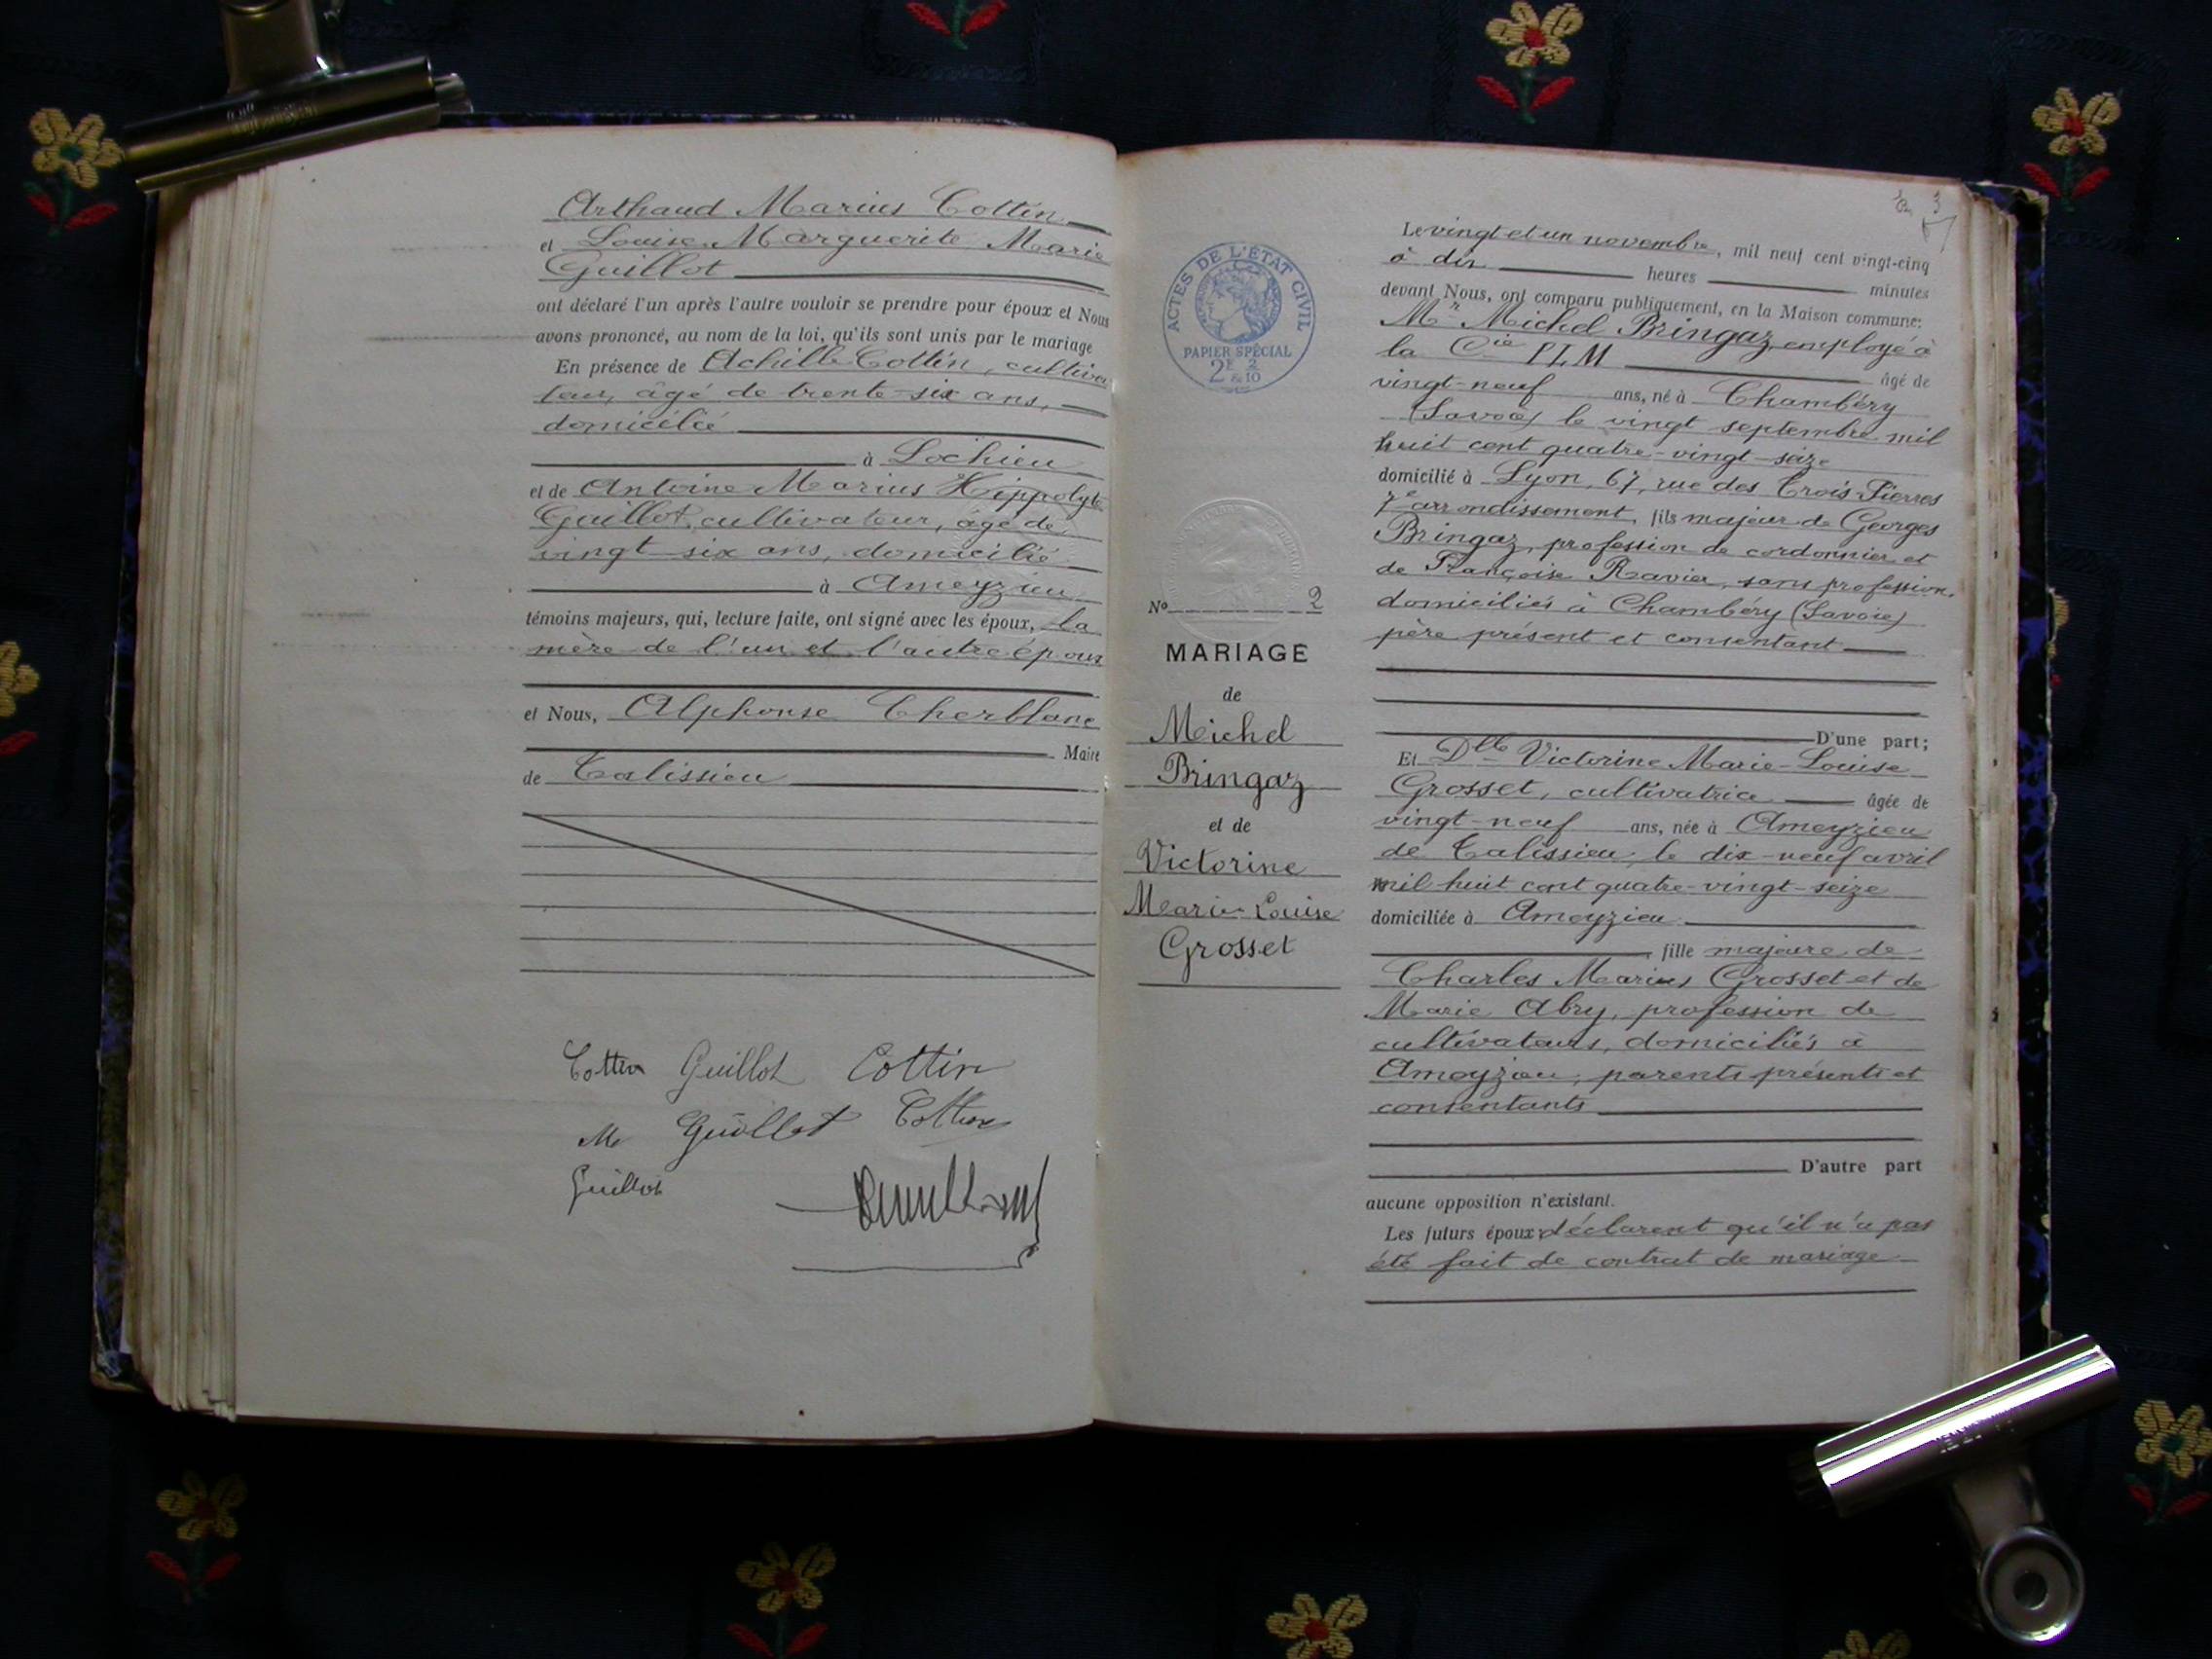 Arthaud Marius Cottin
et Louise Marguerite Marie
Guillot
ont déclaré l'un après l'autre vouloir se prendre pour époux et Nous
avons prononcé, au nom de la loi, qu'ils sont unis par le mariage
En présence de Achille Cottin, cultiva
teur, âgé de trente-six ans,
domicilié
à Lochieu
et de Antoine Marius Hippolyte
Guillot, cultivateur, âgé de
vingt-six ans, domicilié
à Ameyzieu
témoins majeurs, qui, lecture faite, ont signé avec les époux, la
mère de l'un et l'autre époux
et Nous, Alphonse Cherblanc
Maire
de Talissieu
Cottin Guillot Cottin
M Guillot Cottin
Guillot
ACTES DE L'ÉTAT CIVIL
PAPIER SPÉCIAL
2F 2/10
No 2
MARIAGE
de
Michel
Bringaz
et de
Victorine
Marie Louise
Grosset
3
Le vingt et un novembre, mil neuf cent vingt-cinq
à dix heures minutes
devant Nous, ont comparu publiquement, en la Maison commune:
Mr Michel Bringaz, employé à
la Cie PLM âgé de
vingt-neuf ans, né à Chambéry
(Savoie) le vingt septembre mil
huit cent quatre-vingt-seize
domicilié à Lyon, 67, rue des Trois Pierres
7e arrondissement, fils majeur de Georges
Bringaz, profession de cordonnier et
de Françoise Ravier, sans profession,
domiciliés à Chambéry (Savoie)
père présent et consentant
D'une part;
Et Dlle Victorine Marie-Louise
Grosset, cultivatrice âgée de
vingt-neuf ans, née à Ameyzieu
de Talissieu, le dix-neuf avril
mil huit cent quatre-vingt-seize
domiciliée à Ameyzieu
fille majeure de
Charles Marius Grosset et de
Marie Abry, profession de
cultivateurs, domiciliés à
Ameyzieu, parents présents et
consentants
D'autre part
aucune opposition n'existant.
Les futurs époux déclarent qu'il n'a pas
été fait de contrat de mariage